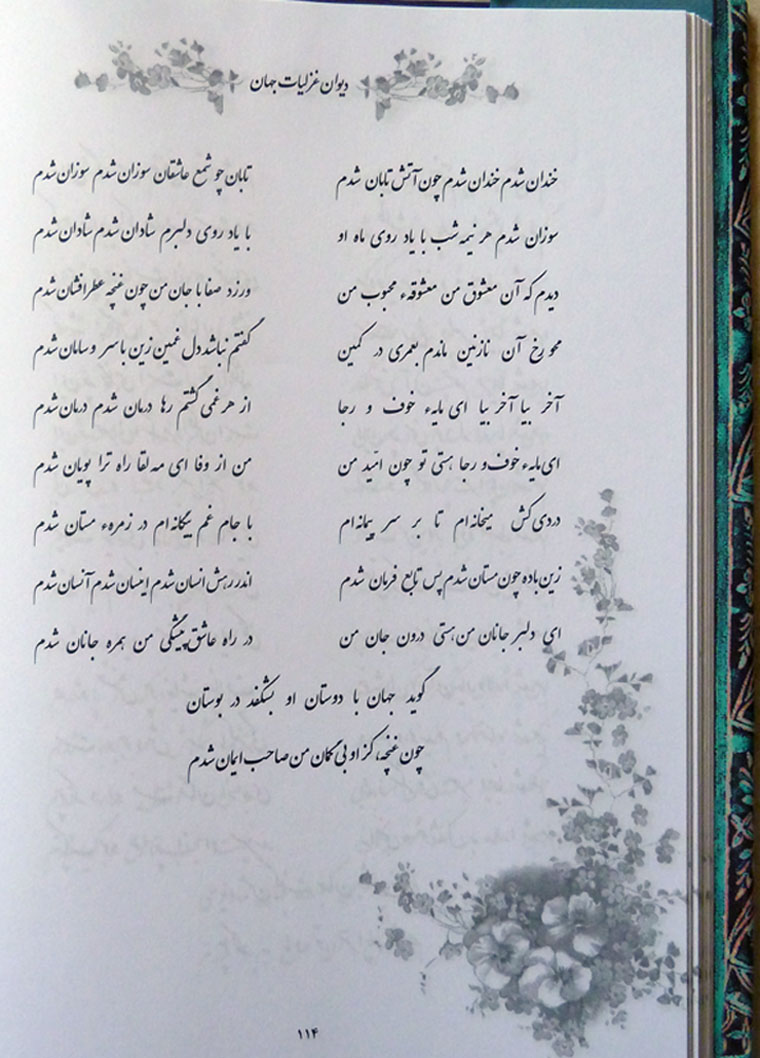 دیوان غزلیات جهان
خندان شدم خندان شدم چون آتش تابان شدم تابان چو شمع عاشقان سوزان شدم سوزان شدم
سوزان شدم هر نیمه شب با یاد روی ماه او با یاد روی دلبرم شادان شدم شادان شدم
دیدم که آن معشوق من معشوقهء محبوب من ورزد صفا با جان من چون غنچه عطرافشان شدم
محو رخ آن نازنین ماندم بعمری در کمین گفتم نباشد دل غمین زین با سر و سامان شدم
آخر بیا آخر بیا ای مایهء خوف و رجا از هر غمی گشتم رها درمان شدم درمان شدم
ای مایهء خوف و رجا هستی تو چون امّید من من از وفا ای مه لقا راه ترا پویان شدم
دردی کش میخانه ام تا بر سر پیمانه ام با جام غم بیگانه ام در زمرهء مستان شدم
زین باده چون مستان شدم پس تابع فرمان شدم اندر رهش انسان شدم اینسان شدم آنسان شدم
ای دلبر جانان من هستی درون جان من در راه عاشق پیشگی من همره جانان شدم
گوید جهان با دوستان او بشکفد در بوستان
چون غنچه، کز او بی گمان من صاحب ایمان شدم
۱۱۴